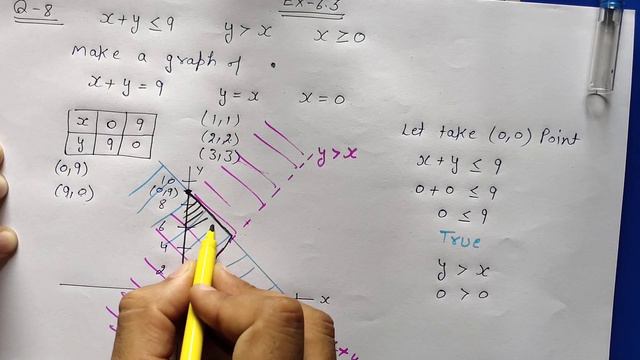 Q-8 x+y ≤ 9 y > x x ≥ 0
Ex-6.3
Make a graph of
x+y = 9 y = x x = 0
x 0 9
y 9 0
(0,9)
(9,0)
(1,1)
(2,2)
(3,3)
y > x
Y
10
(0,9)
8
6
4
2
x
Let take (0,0) Point
x+y ≤ 9
0+0 ≤ 9
0 ≤ 9
True
y > x
0 > 0